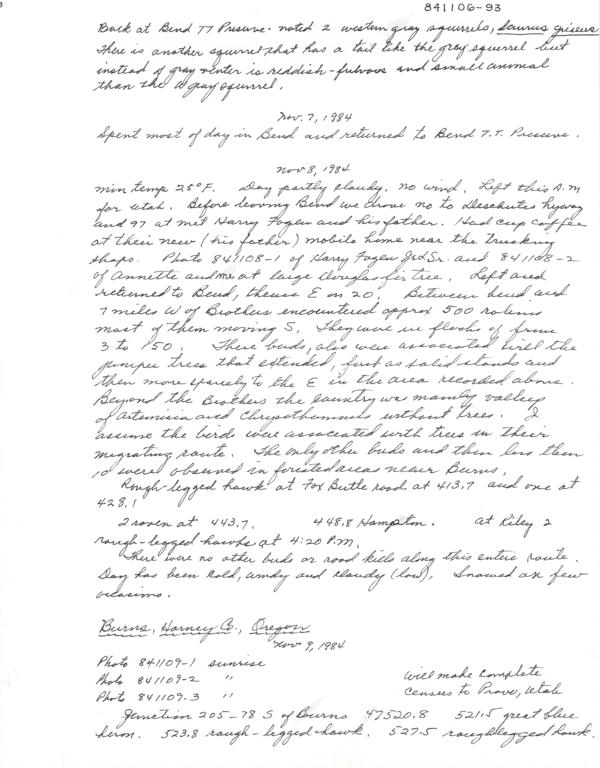 841106-93
Back at Bend TT Preserve - noted 2 western gray squirrels, Sciurus griseus
There is another squirrel that has a tail like the gray squirrel but
instead of gray venter is reddish-fulvous and small animal
than the gray squirrel.
Nov. 7, 1984
Spent most of day in Bend and returned to Bend T.T. Preserve.
Nov 8, 1984
min temp 25°F. Day partly cloudy, no wind. Left this A.M
for Utah. Before leaving Bend we drove no to Deschutes hyway
and 97 at met Harry Fagen and his father. Had cup coffee
at their new (his father) mobile home near the trucking
shops. Photo 841108-1 of Harry Fagen Jr & Sr. and 841108-2
of Annette and me at large Douglas fir tree. Left and
returned to Bend, thence E on 20. Between bend and
7 miles W of Brothers encountered approx 500 robins
most of them moving S. They were in flocks of from
3 to 150. These birds, also were associated with the
juniper trees that extended, first as solid stands and
then more sparcely to the E in the area recorded above.
Beyond the Brothers the country was mainly valley
of Artemisia and Chrysothamnus without trees. I
assume the birds were associated with trees in their
migrating route. The only other birds and then less then
10 were observed in forested areas near Burns.
Rough-legged hawk at Fox Butte road at 413.7 and one at
428.1
2 raven at 443.7. 448.8 Hampton. At Riley 2
rough-legged hawks at 4:20 P.M.
There were no other birds or road kills along this entire route.
Day has been cold, windy and cloudy (low). Snowed on few
occasions.
Burns, Harney Co., Oregon
Nov 9, 1984
Photo 841109-1 sunrise
Photo 841109-2 "
Photo 841109-3 "
will make complete
census to Provo, Utah
Junction 205-78 S of Burns 47520.8 521.5 great blue
heron. 523.8 rough-legged hawk. 527.5 roughlegged hawk.